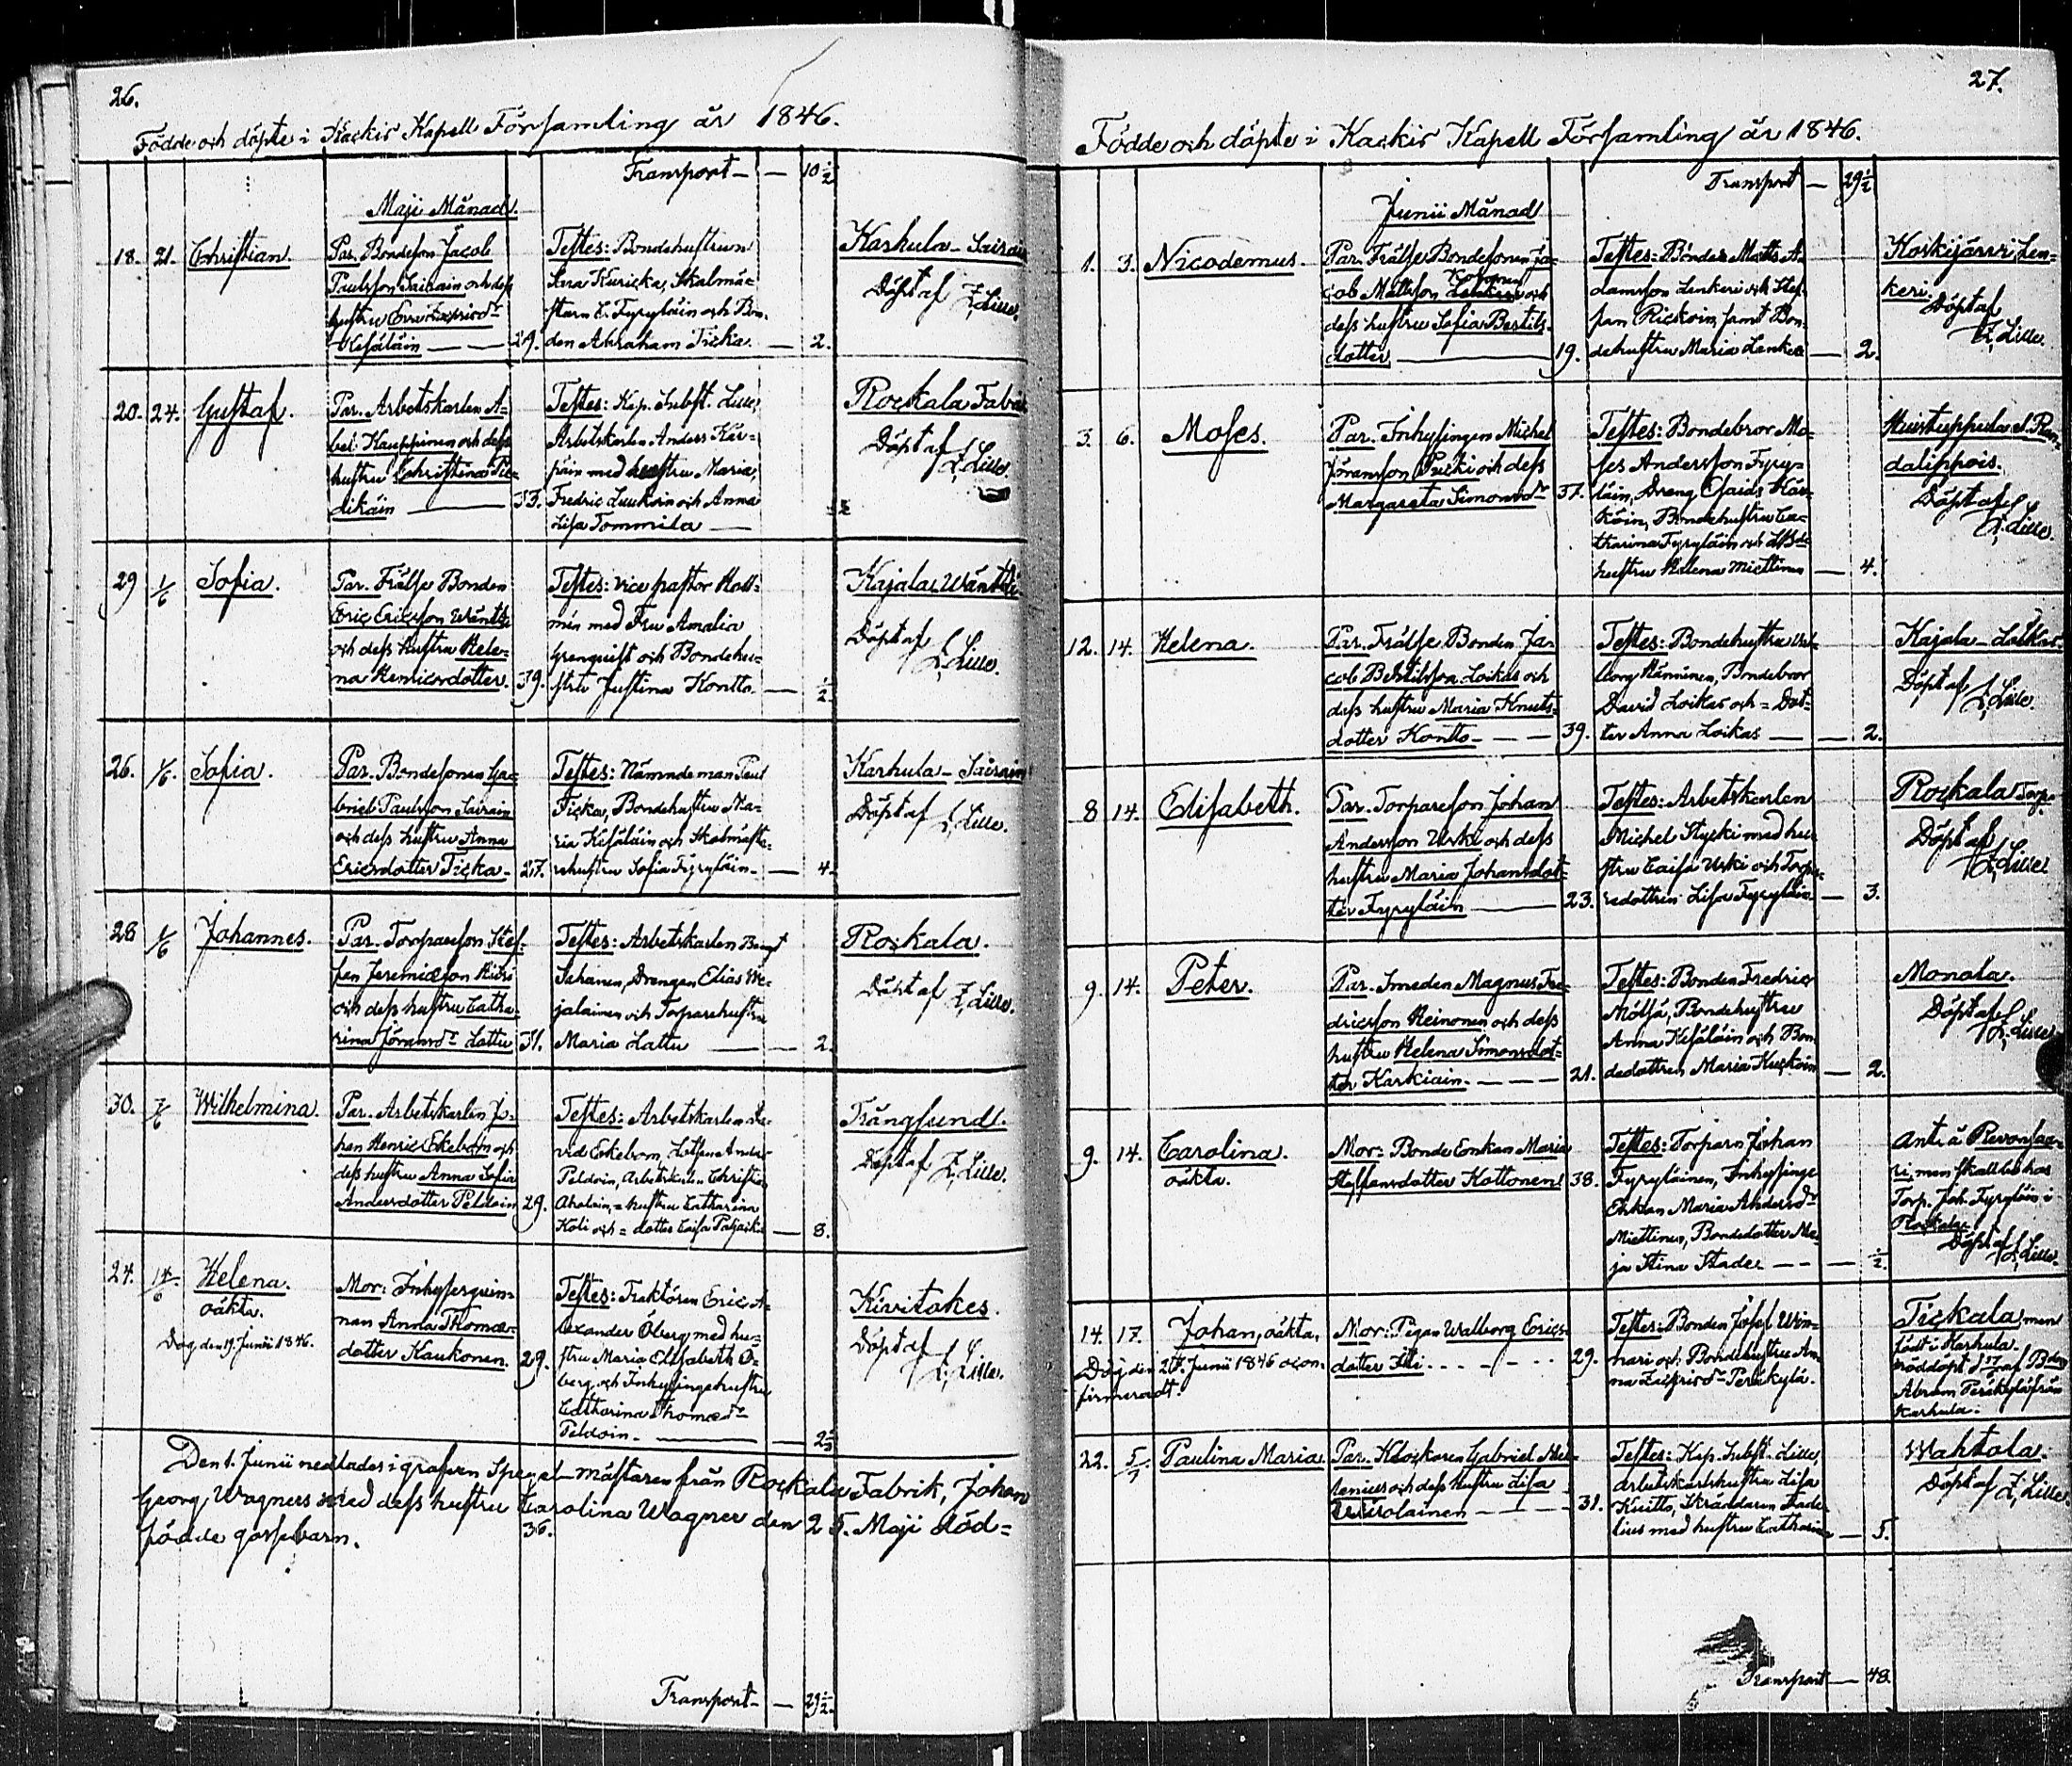 26.
Födde och döpte i Kackis Kapell Församling år 1846.
Transport — — 10 1/2
Maji Månad.
18. 21. Christian.
Par. Bondeson Jacob
Paulsson Sairain och dess
hustru
Kesäläin — — 29.
Testes: Bondehustrun
Skalmä-
Tyryläin och Bon-
den Abraham Ticka. — 2.
Karhula - Sairain
Döpt af Z. Lille.
20. 24. Gustaf.
Par. Arbetskarlen A-
bel Kauppinen och dess
hustru Christina Pie-
dikäin — 33.
Testes: Kap. Subst. Lille,
Arbetskarlen Anders Kär-
päin med hustru Maria,
Fredric Luukoin och Anna
Lisa Tommila —
Rockala Fabr
Döpt af Z. Lille
29 1/6 Sofia.
Par. Frälse Bonden
Eric Ericsson Wäntti
och dess hustru Hele-
na Henricsdotter. 39.
Testes: Vice pastor
med Fru Amalia
Grenquist och Bondehu-
stru Justina Kontto. — 1/2
Kajala Wäntti
Döpt af Z. Lille.
26. 1/6. Sofia.
Par. Bondesonen Ga-
briel Paulsson Sairain
och dess hustru Anna
Ericsdotter Ticka. 27.
Testes: Nämndeman Paul
Ticka, Bondehustru Ma-
ria Kesäläin och Skolmäста-
rehustru Sofia Tyryläin. — 4.
Karhula - Sairain
Döpt af Z. Lille.
28 1/6 Johannes.
Par. Torpareson Stef-
fan Jeremiæson
och dess hustru Catha-
rina Göransdr Lattu 31.
Testes: Arbetskarlen Bengt
Sahanen, Drengen Elias We-
jalainen och Torparehustru
Maria Lattu — — 2.
Rockala.
Döpt af Z. Lille.
30. 7/6 Wilhelmina.
Par. Arbetskarlen Jo-
han Henric Ekebom och
dess hustru Anna Sofia
Andersdotter Peldoin 29.
Testes: Arbetskarlen Da-
vid Ekebom, Lotsen Anders
Peldoin, Arbetskarlen Christian
Aholain, = hustru Catharina
Koli och = dotter Caisa — 8.
Trångsund.
Döpt af Z. Lille.
24. 14/6 Helena.
oäkta.
Dog den 19. Junii 1846.
Mor: Inhyserqvin-
nan Anna Thomæ-
dotter Kaukonen. 29.
Testes: Traktören Eric A-
lexander Öberg med hu-
stru Maria Elisabeth Ö-
berg, och Inhysingehustru
Catharina Thomædr
Peldoin. — — 2 1/2
Kivitokes.
Döpt af Z. Lille.
Den 1. Junii nedlades i grafven Spegel-mästaren från Rockala Fabrik, Johan
Georg Wagners med dess hustru Carolina Wagner den 25. Maji död=
36.
födde gossebarn.
Transport — — 29 1/2
27.
Födde och döpte i Kackis Kapell Församling år 1846.
Transport — 29 1/2
Junii Månad
1. 3. Nicodemus.
Par. Frälse Bondesonen Ja-
cob Mattsson och
dess hustru Sofia Bertils-
dotter — 19.
Testes: Bönder Matts A-
damsson Lenkeri och Stef-
fan Rickoin, samt Bon-
dehustru Maria Lenkeri — 2.
Koskijärvi Len-
keri.
Döpt af
Z. Lille.
3. 6. Moses.
Par. Inhysingen Michel
Göransson Pucki och dess
Margareta Simonsdr 37.
Testes: Bondebror Mo-
ses Andersson Tyry-
läin, Dreng Esaias Kär-
köin, Bondehustru Ca-
tharina Tyryläin och
hustru Helena Miettinen — 4.
dalippois.
Döpt af
Z. Lille.
12. 14. Helena.
Par. Frälse Bonden Ja-
cob Bertilsson Loikas och
dess hustru Maria Knuts-
dotter Kontto — — 39.
Testes: Bondehustru Wal-
borg Hänninen, Bondebror
David Loikas och = Dot-
ter Anna Loikas — — 2.
Kajala - Loikas.
Döpt af Z. Lille.
8 14. Elisabeth.
Par. Torpareson Johan
Andersson Urki och dess
hustru Maria Johansdot-
ter Tyryläin — 23.
Testes: Arbetskarlen
Michel Stycki med hu-
stru Caisa Urki och Torpa-
redottren Lisa Tyryläin — 3.
Rockala Torp.
Döpt af
Z. Lille
9. 14. Peter.
Par. Smeden Magnus Fre-
dricsson Heinonen och dess
hustru Helena Simonsdot-
ter Karkiain. — — — 21.
Testes: Bonden Fredric
Mölsä, Bondehustru
Anna Kesäläin och Bon-
dedottren Maria — 2.
Monola.
Döpt af
Z. Lille
9. 14. Carolina.
oäkta.
Mor: Bonde Enkan Maria
Staffansdotter Kottonen 38.
Testes: Torparn Johan
Tyryläinen, Inhysinge
Enkan Maria Andersdr
Miettinen, Bondedotter Ma-
ja Stina Stadee — — — 1/2.
Antrå Revonsaa-
ri, men skall bo hos
Torp. Joh. Tyryläin i
Rockala.
Döpt af Z. Lille.
14. 17. Johan, oäkta,
Dog den 20. Junii 1846 ocon-
firmeradt.
Mor: Pigan Walborg Erics-
dotter Itti . . . . . 29.
Testes: Bonden Josef Wen-
nari och Bondehustru An-
na Zachrisdr Peräkylä.
Tickala, men
född i Karhula.
nöddöpt af Bden
Abram Peräkylä från
Karhula.
22. 5/7 Paulina Maria.
Par. Klockaren Gabriel
och dess hustru Lisa
— — — 31.
Testes: Kap. Subst. Lille,
arbetskarlshustru Lisa
Kuitto, Skräddaren Fade-
lius med hustru Catharina — 5.
Wahtola.
Döpt af Z. Lille
Transport — 48.